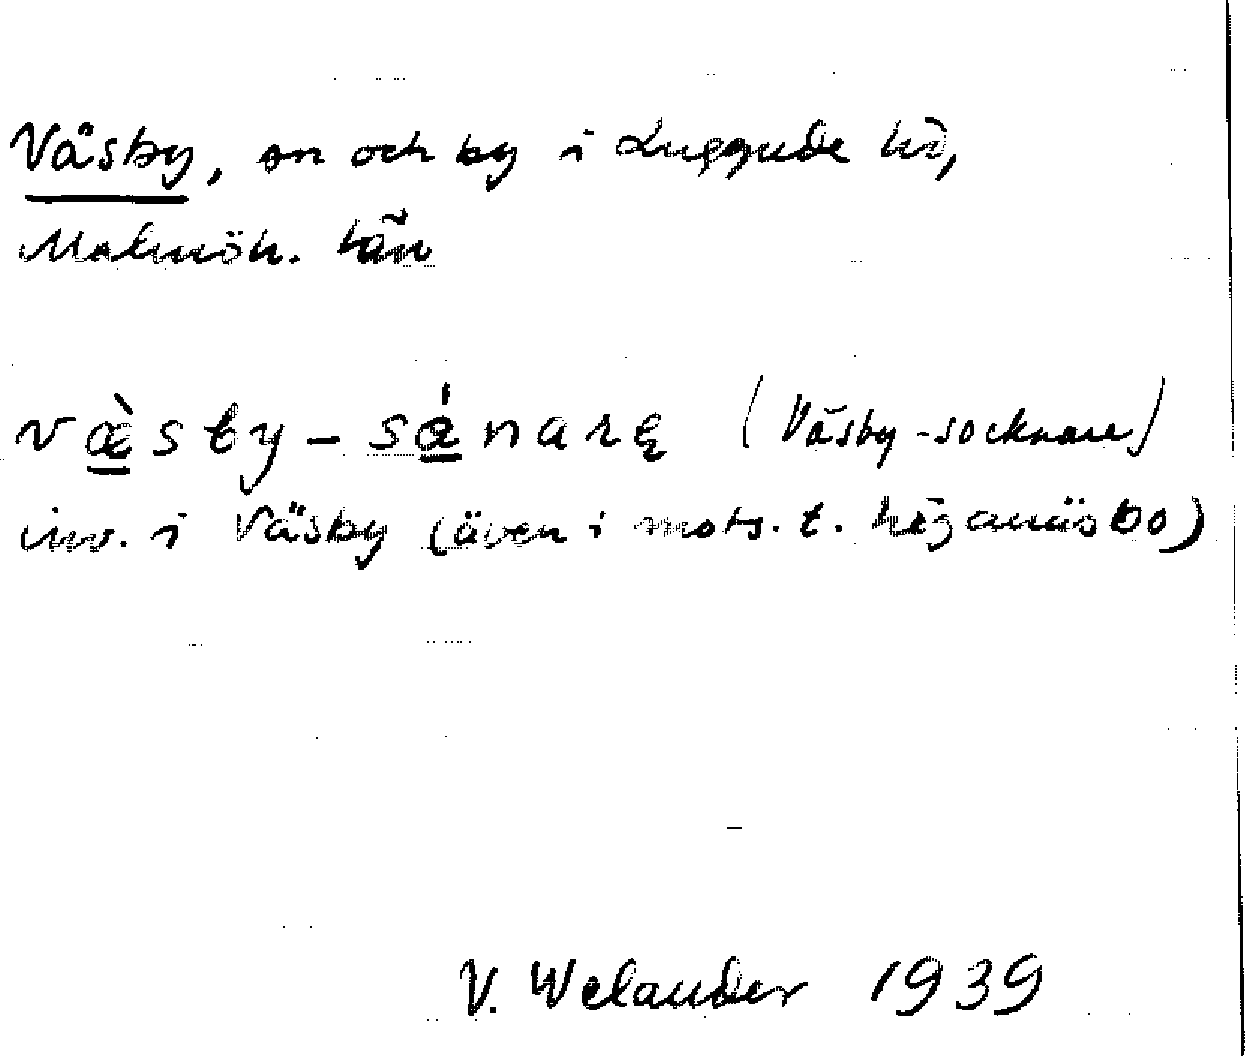 Väsby, sn och by i Luggude hd,
Malmöh. län
væ̀sby-sǽnarę (Väsby-socknare)
inv. i Väsby (även i mots. t. höganäsbo)
V. Welander 1939